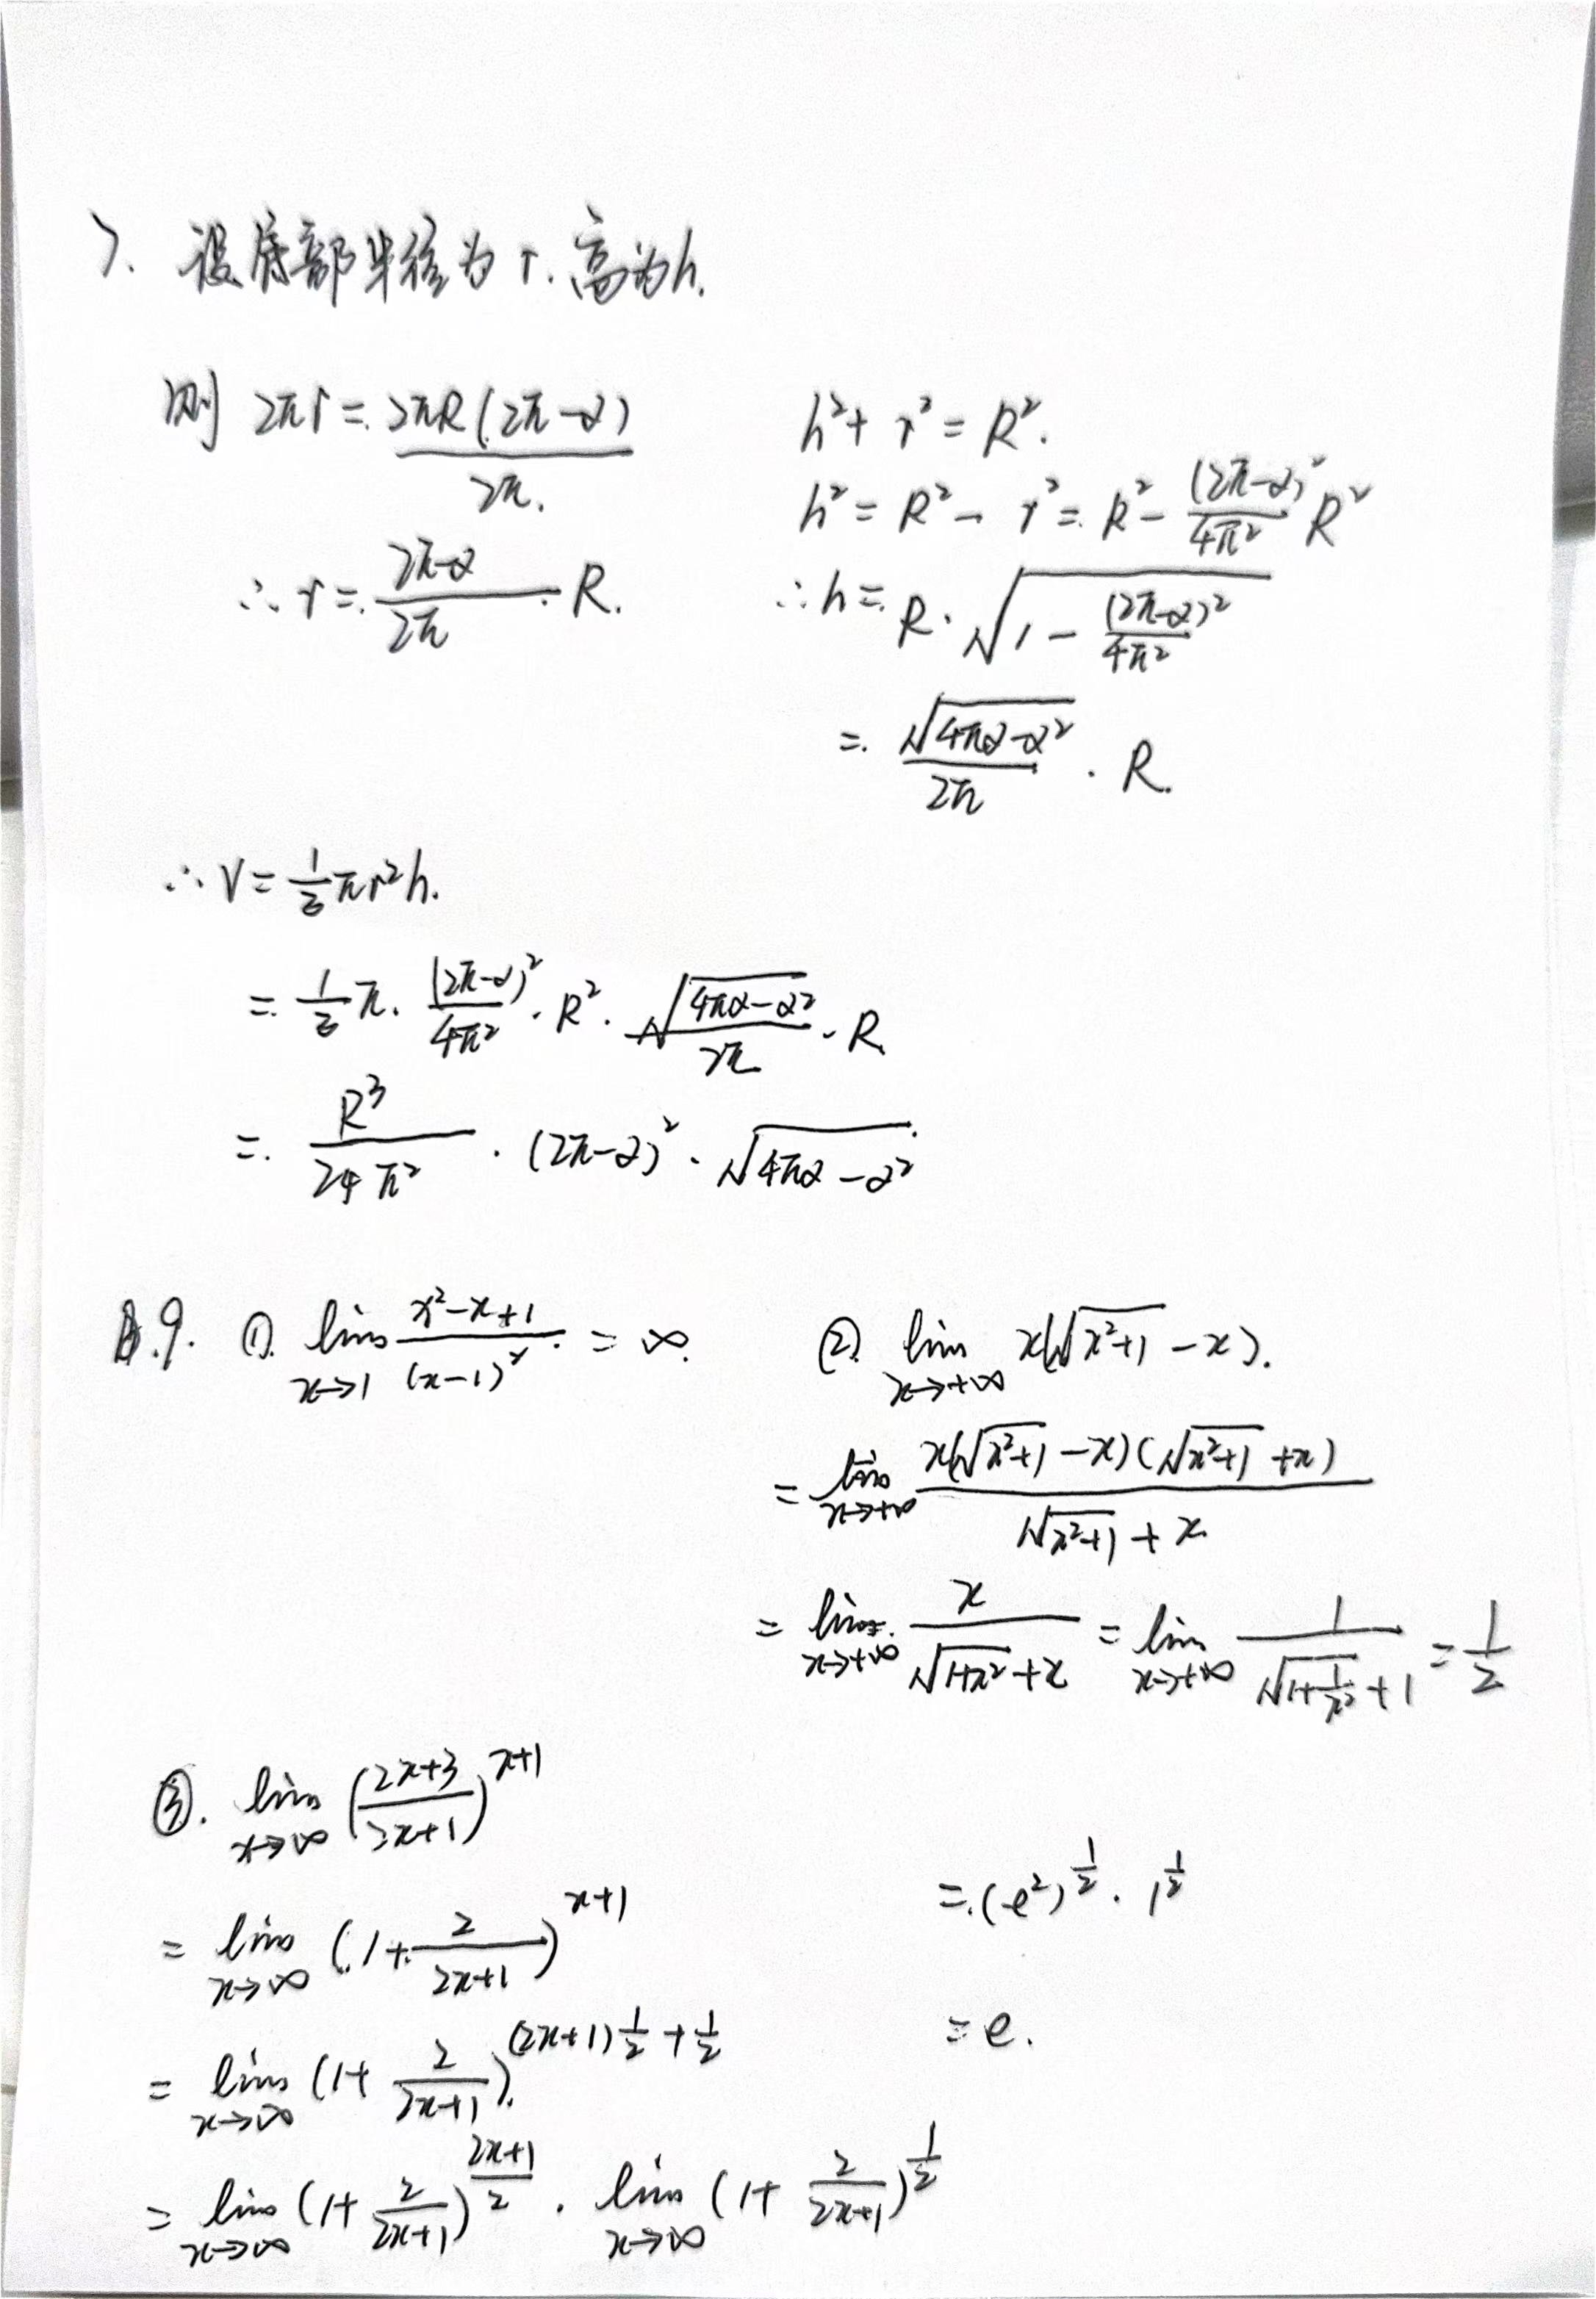 7. 设底部半径为 r. 高为h.
则 2πr = 2πR(2π-α)/2π.
∴ r = (2π-α)/2π · R.
h² + r² = R².
h² = R² - r² = R² - (2π-α)²/4π² R²
∴ h = R · √(1 - (2π-α)²/4π²)
= √(4πα-α²)/2π · R.
∴ V = 1/3 πr²h.
= 1/3 π · (2π-α)²/4π² · R² · √(4πα-α²)/2π · R.
= R³/24π² · (2π-α)² · √(4πα-α²)
9. ① lim x→1 (x²-x+1)/(x-1)² = ∞.
② lim x→+∞ x(√(x²+1) - x).
= lim x→+∞ x(√(x²+1) - x)(√(x²+1) + x)/(√(x²+1) + x)
= lim x→+∞ x/(√(1+x²) + x) = lim x→+∞ 1/(√(1+1/x²) + 1) = 1/2
③. lim x→∞ ((2x+3)/(2x+1))^(x+1)
= lim x→∞ (1 + 2/(2x+1))^(x+1)
= lim x→∞ (1 + 2/(2x+1))^((2x+1)1/2 + 1/2)
= lim x→∞ (1 + 2/(2x+1))^((2x+1)/2) · lim x→∞ (1 + 2/(2x+1))^(1/2)
= (e²)^(1/2) · 1^(1/2)
= e.